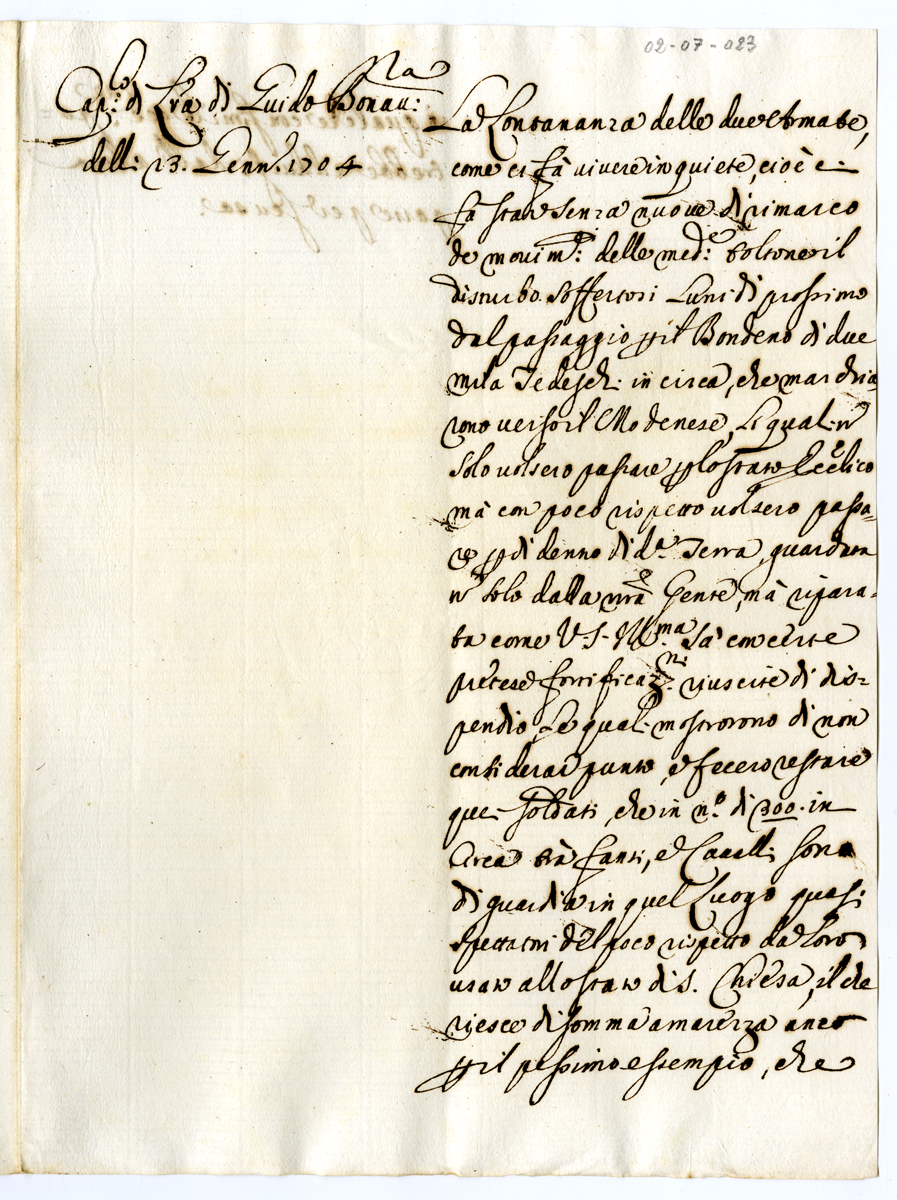 02-07-023
Cap.lo di Lra di Guido Bonau:ra
dell: 23. Genn.o 1704
La Lontananza delle due Armate,
come ci fà viuere in quiete, cioè ci
fà star senza nuoue di rimarco
de mouim.ti delle med.e toltone il
disturbo soffertosi Lunidì prossimo
dal passaggio p il Bondeno di due
mila Tedeschi in circa, che marchia-
rono uerso il Modenese, Li quali n
solo uolsero passare p lo stato Ecc.lico
mà con poco rispetto uolsero passa-
re p di denno di d.a Terra, guardata
n solo dalla nrã Gente, mà ripara-
ta come V.S. Ill.ma sà con certe
pretese fortificaz.ni riuscite di dis-
pendio, Le quali mostrorono di non
considerar punto, e fecero restare
quei soldati, che in n.o di 300. in
Circa trà fanti, e Caualli sono
di guardia in quel Luogo quasi
spettatori del poco rispetto da Loro
usato allo stato di S. Chiesa, il che
riesce di somma amarezza anco
p il pessimo essempio, che